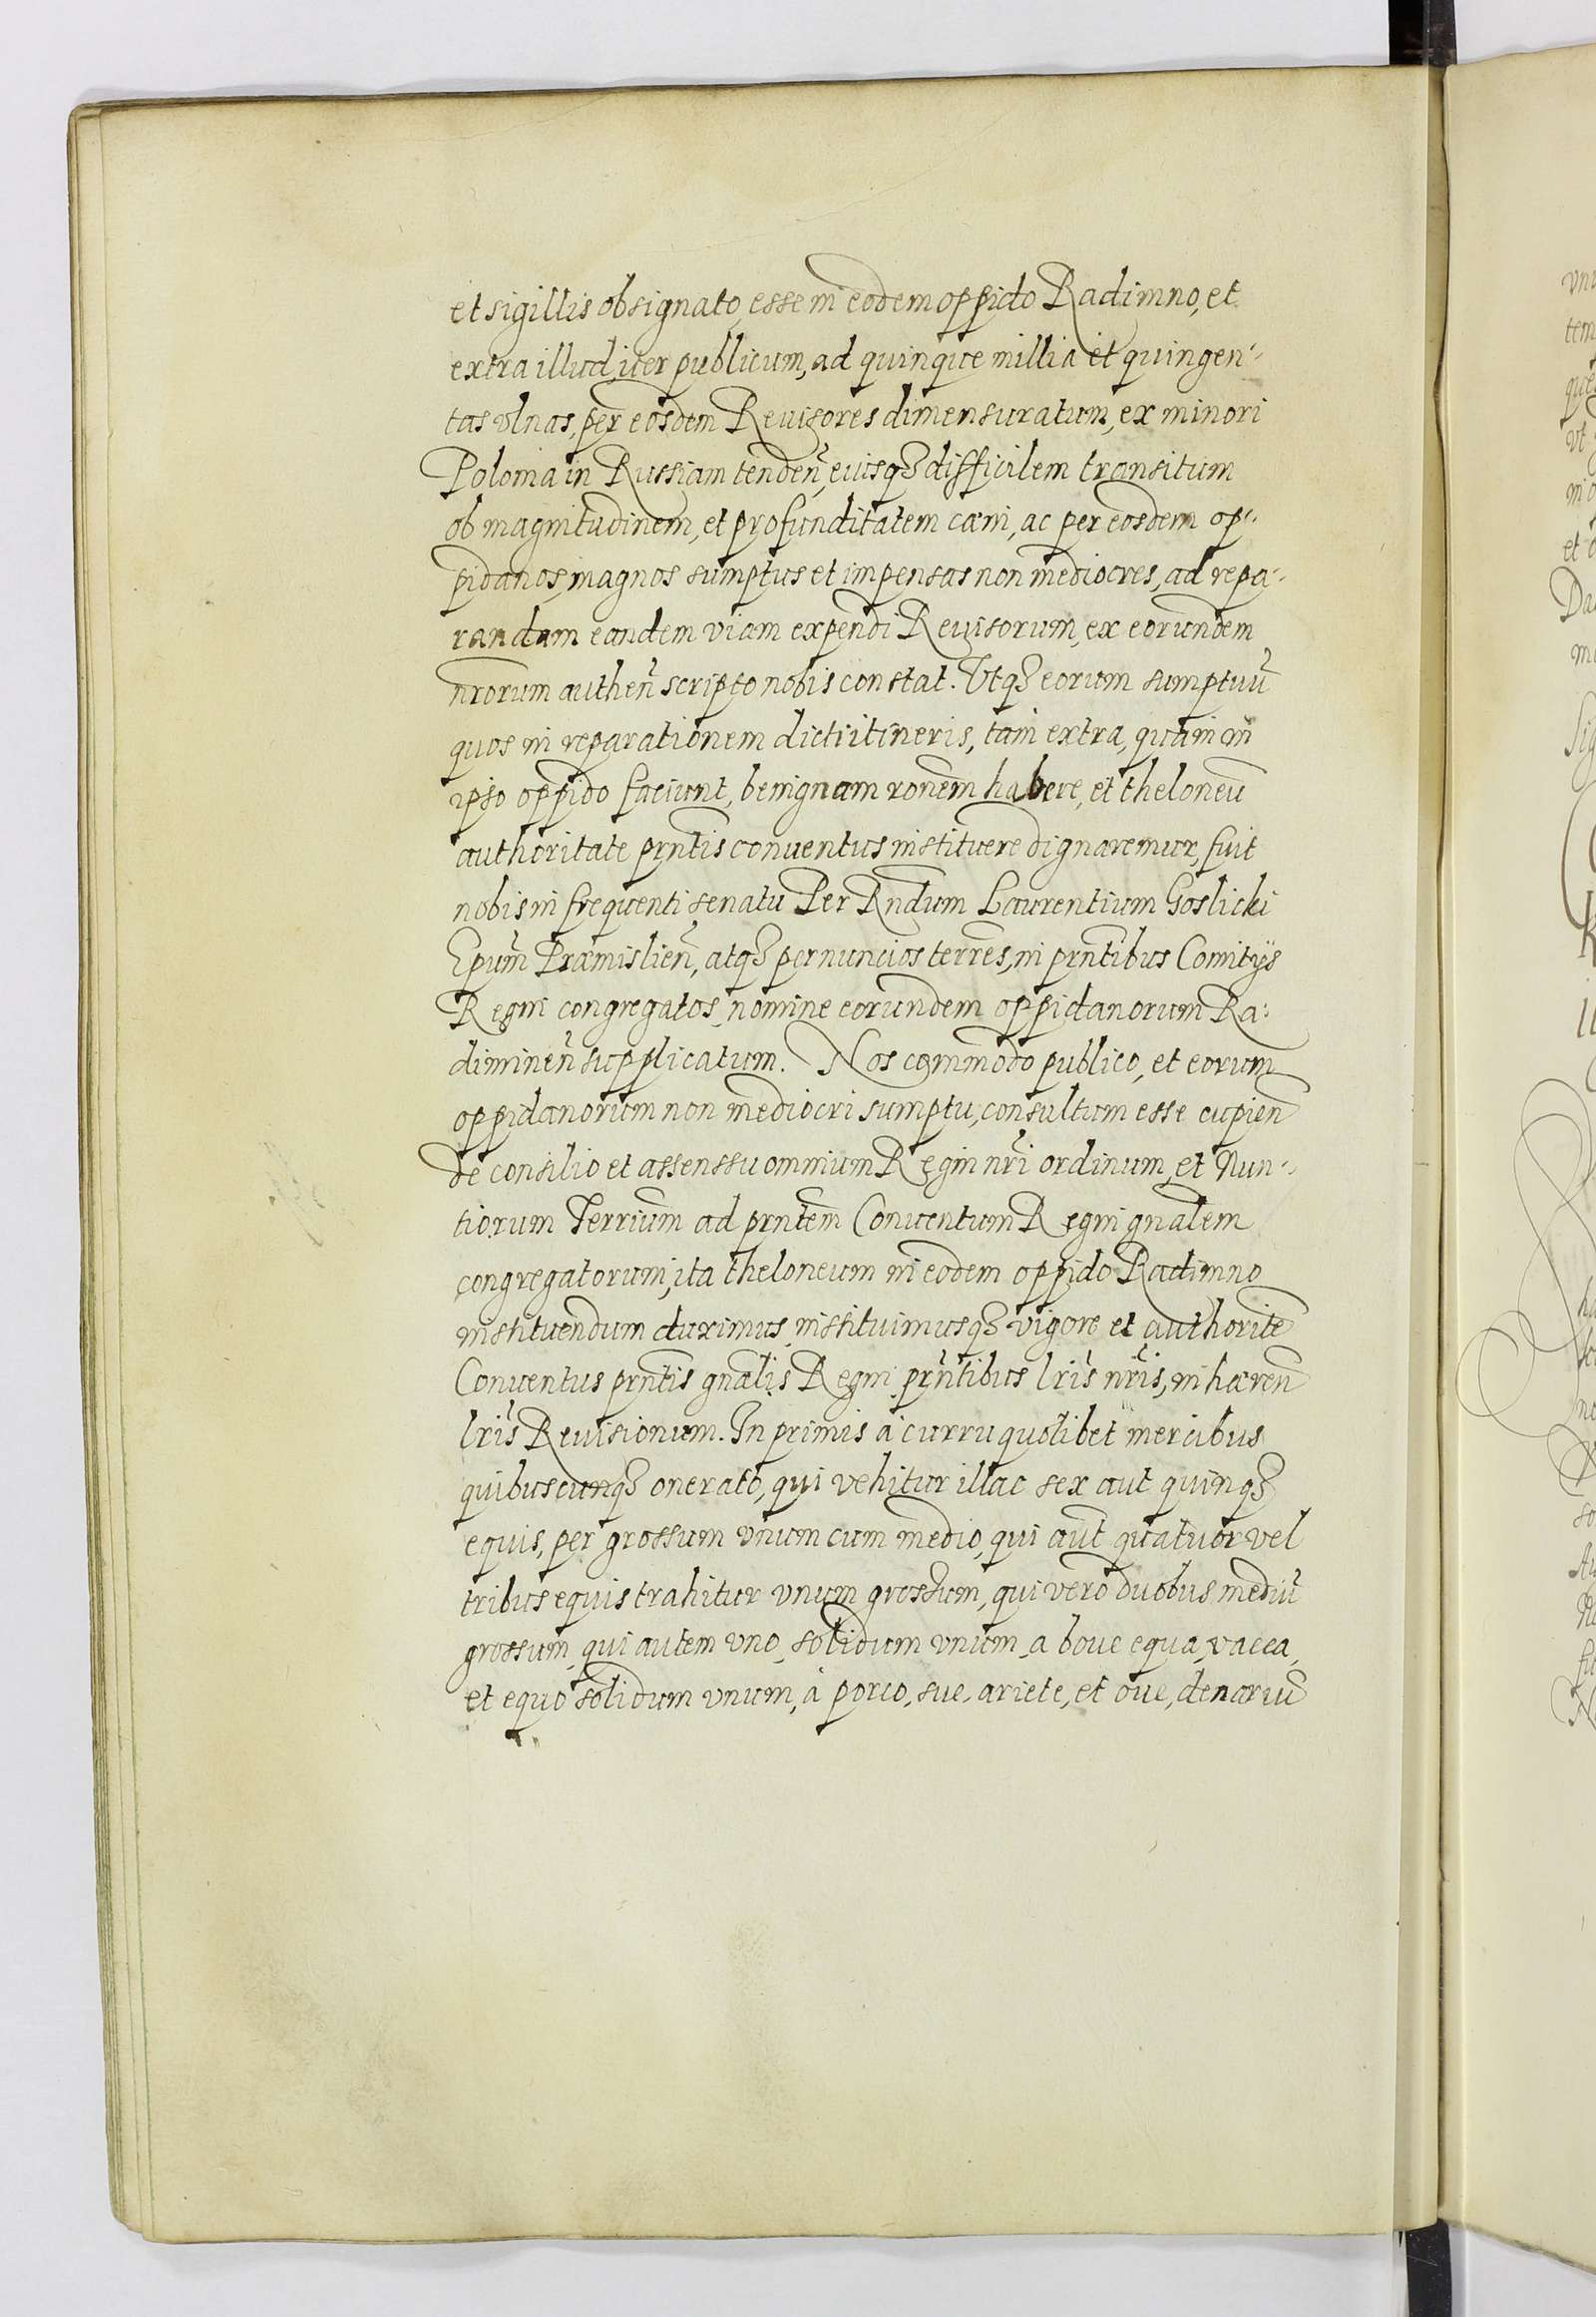 et sigillis obsignato, esse in eodem oppido Radimno, et
extra illud, iter publicum, ad quinque millia et quingen-
tas vlnas, per eosdem Reuisores dimensuratum, ex minori
Polonia in Russiam tendeñ, euisq₃ difficilem transitum
ob magnitudinem, et profunditatem cæni, ac per eosdem op-
pidanos, magnos sumptus et impensas non mediocres, ad repa-
randam eandem viam expendi Reuisorum, ex eorundem
nr̃orum autheñ scripto nobis constat. Utq₃ eorum sumptuũ
quos in reparationem dicti itineris, tam extra, quam in
ipso oppido faciunt, benignam ronẽm habere, et theloneũ
authoritate prñtis conuentus instituere dignaremur, fuit
nobis in frequenti senatu Per Rñdum Laurentium Goslicki
Epum̃ Præmislieñ, atq₃ per nuncios terrẽs, in prñtibus Comitijs
Regni congregatos, nomine eorundem oppidanorum Ra-
dimineñ supplicatum. Nos commodo publico, et eorum
oppidanorum non mediocri sumptu, consultum esse cupieñ
de consilio et assenssu omnium Regni nr̃i ordinum, et Nun-
tiorum Terrium̃ ad prñtem Conuentum Regni gnãlem
congregatorum, ita theloneum in eodem oppido Radimno
instituendum duximus, instituimusq₃ vigore et authoritẽ
Conuentus prñtis gnãlis Regni prñtibus lr̃is nr̃is, in hæreñ
lr̃is Reuisionum. In primis à curru quolibet mercibus
quibuscunq₃ onerato, qui vehitur illac sex aut quinq₃
equis, per grossum vnum cum medio, qui aut̃ quatuor vel
tribus equis trahitur vnum grossum, qui vero duobus mediũ
grossum, qui autem vno, solidum vnum, a boue equa, vacca,
et equo solidum vnum, à porco, sue, ariete, et oue, denariũ